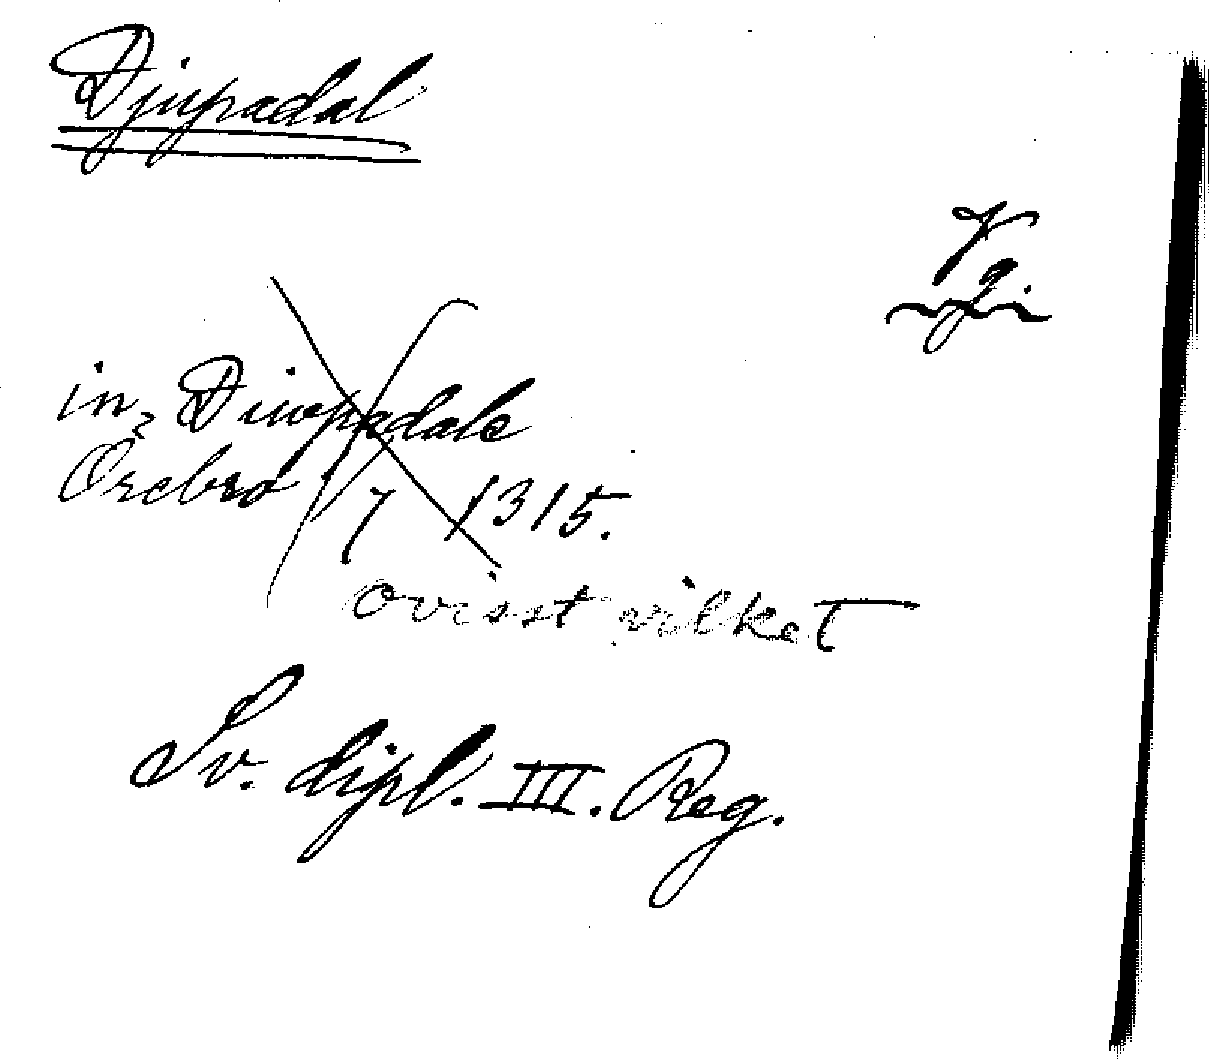 Djupadal
Vg.
in Diupadale
Örebro 7 1315.
ovisst vilket
Sv. dipl. III. Reg.